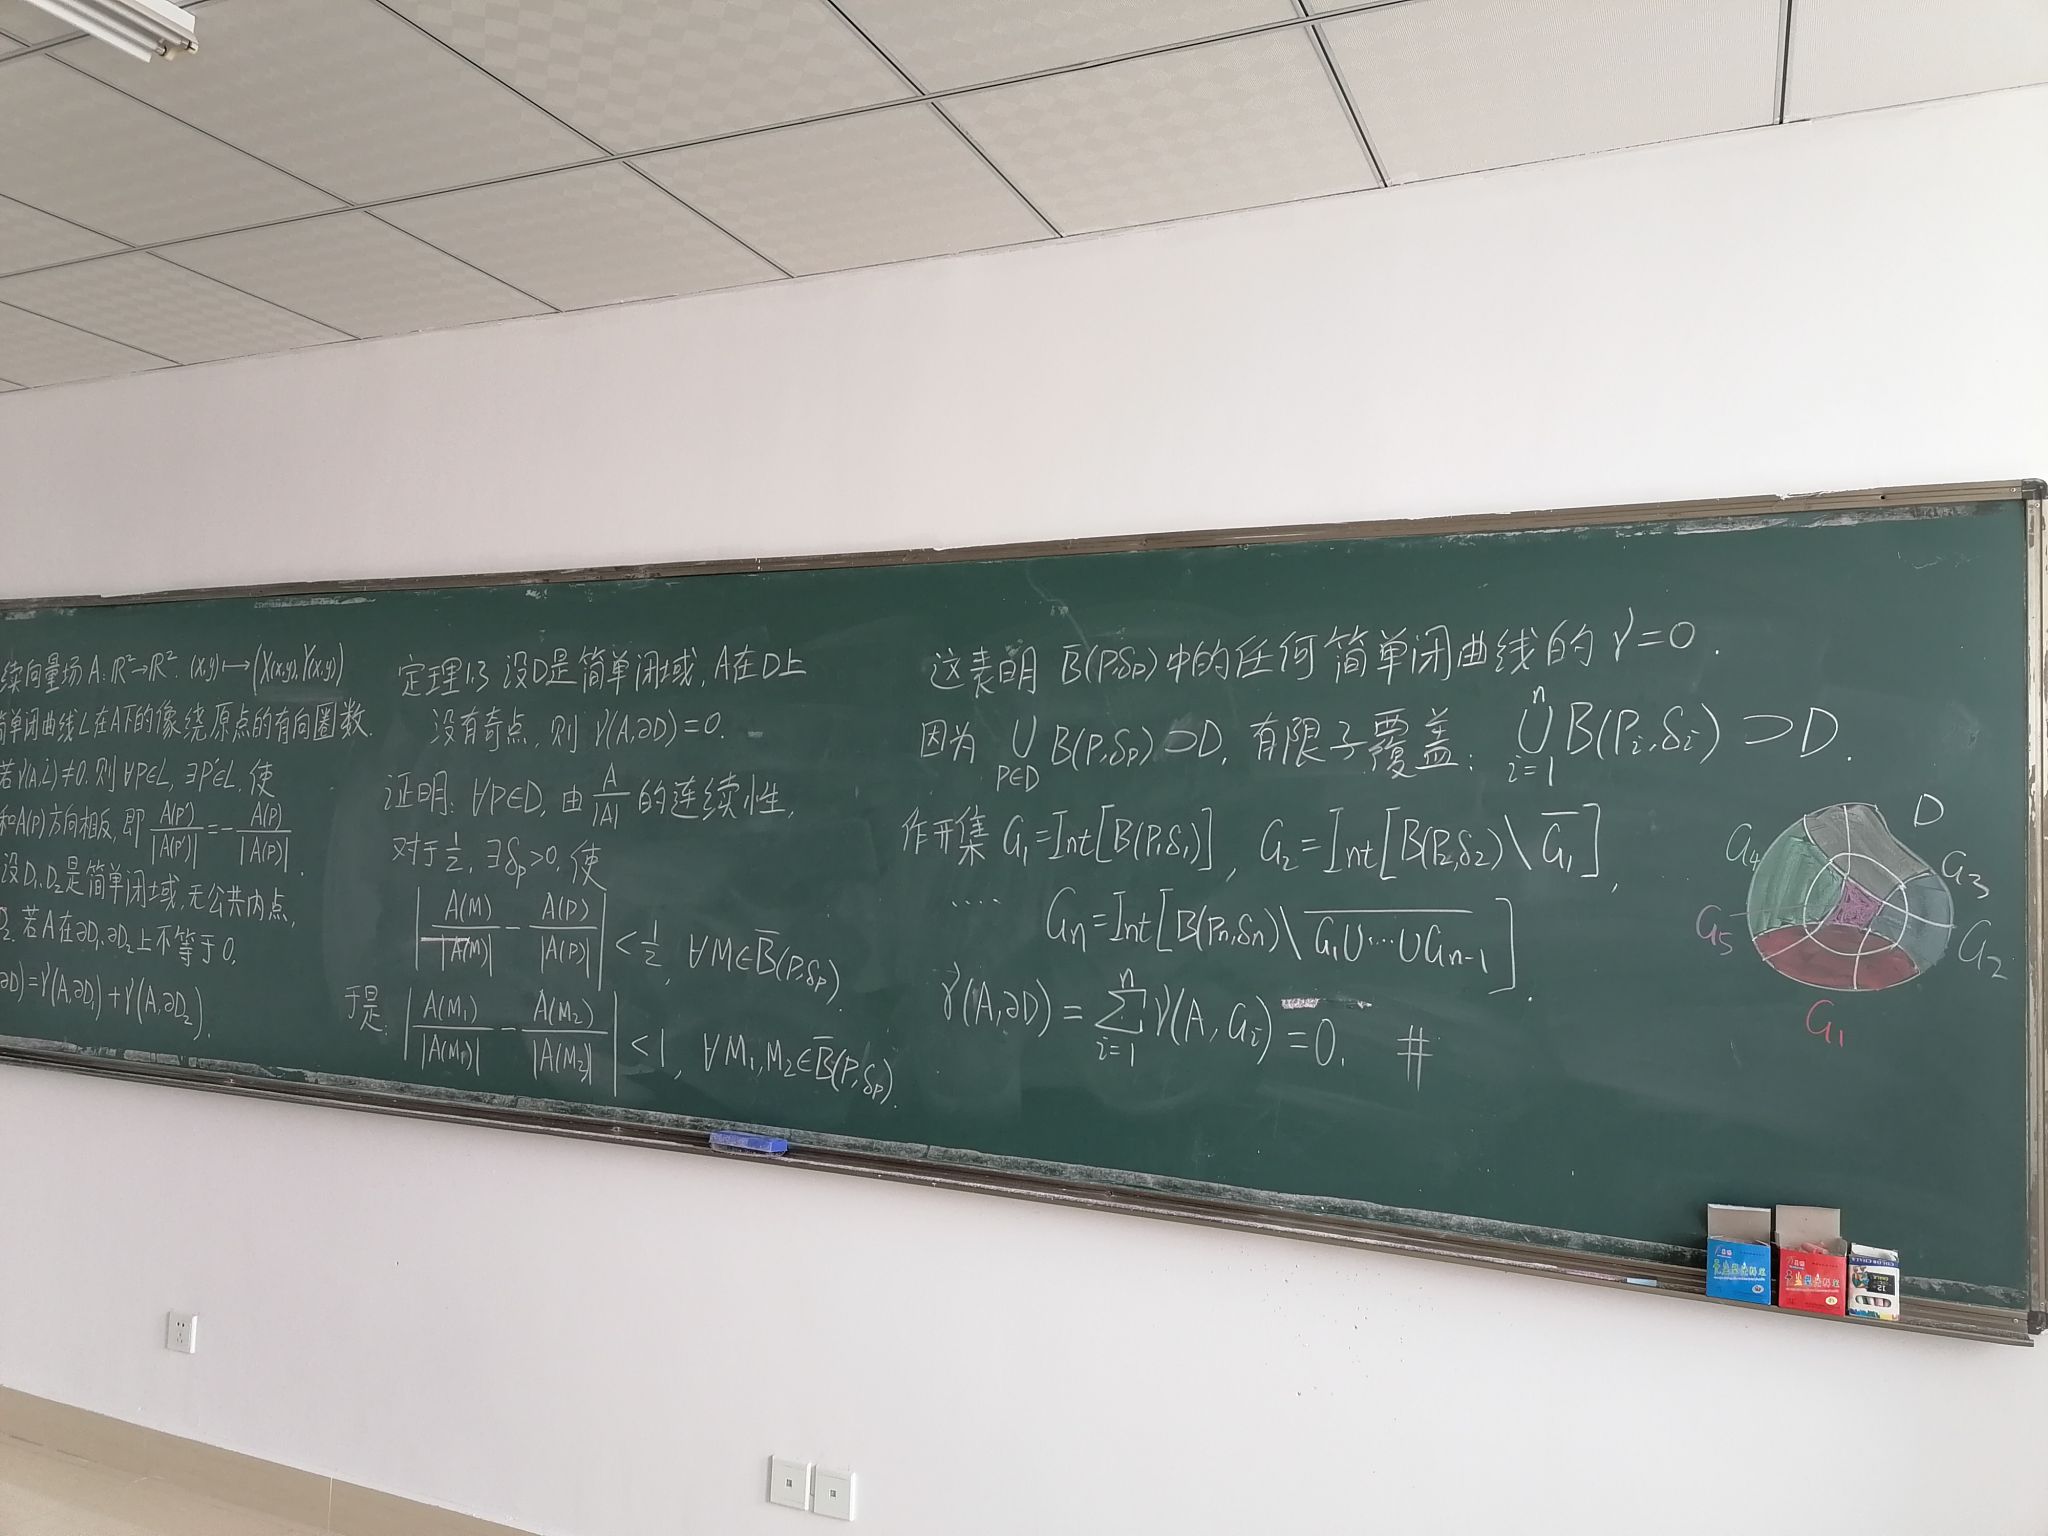 续向量场 A: R²→R². (x,y)↦(X(x,y), Y(x,y))
简单闭曲线L在A下的像绕原点的有向圈数.
若γ(A,L)≠0, 则∀P∈L, ∃P'∈L, 使
和A(P)方向相反, 即 A(P')/|A(P')| = -A(P)/|A(P)|.
设D₁,D₂是简单闭域, 无公共内点,
D₂. 若A在∂D₁,∂D₂上不等于0,
∂D)=γ(A,∂D₁)+γ(A,∂D₂).
定理1.3 设D是简单闭域, A在D上
没有奇点, 则 γ(A,∂D)=0.
证明: ∀P∈D, 由 A/|A| 的连续性,
对于1/2, ∃δₚ>0, 使
|A(M)/|A(M)| - A(P)/|A(P)|| < 1/2, ∀M∈B̅(P,δₚ)
于是: |A(M₁)/|A(M₁)| - A(M₂)/|A(M₂)|| < 1, ∀M₁,M₂∈B̅(P,δₚ).
这表明 B̅(P,δₚ)中的任何简单闭曲线的 γ=0.
因为 ∪_{P∈D} B(P,δₚ)⊃D, 有限子覆盖: ∪_{i=1}^{n} B(Pᵢ,δᵢ)⊃D.
作开集 G₁=Int[B(P₁,δ₁)], G₂=Int[B(P₂,δ₂)\G̅₁],
.... Gₙ=Int[B(Pₙ,δₙ)\\overline{G₁∪…∪Gₙ₋₁}].
γ(A,∂D)=∑_{i=1}^{n} γ(A,Gᵢ)=0. #
D
G₄
G₃
G₅
G₂
G₁
COLOR CHALK
12